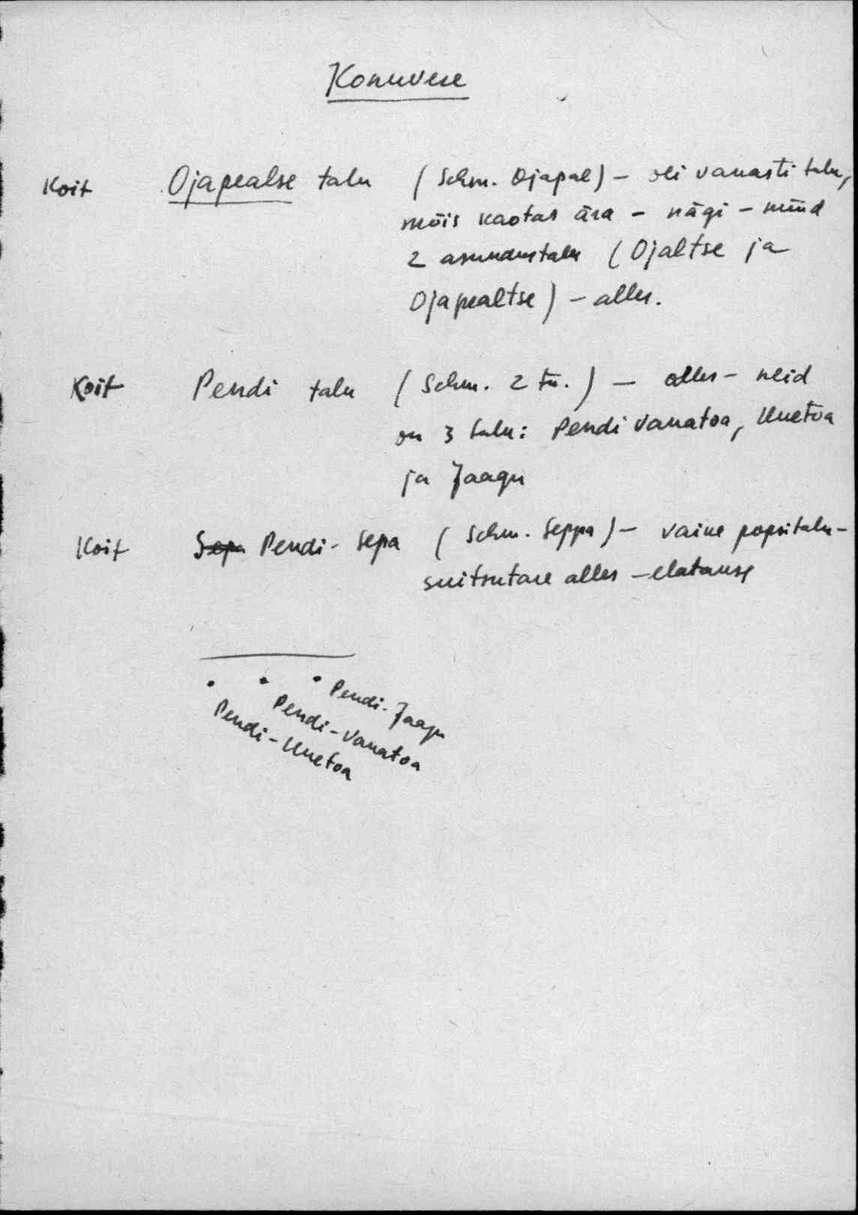 Konuvere
Koit Ojapealse talu (Schm. Ojapal) – oli vanasti talu,
mõis kaotas ära – nägi – nüüd
2 asundustalu (Ojaltse ja
Ojapealtse) – alles.
Koit Pendi talu (Schm. 2 tü.) – alles – neid
on 3 talu: Pendi Vanatoa, Uuetoa
ja Jaagu
Koit Sepa Pendi-Sepa (Schm. Seppa) – väike popsitalu –
suitsutare alles – elatakse
Pendi-Jaagu
Pendi-Vanatoa
Pendi-Uuetoa